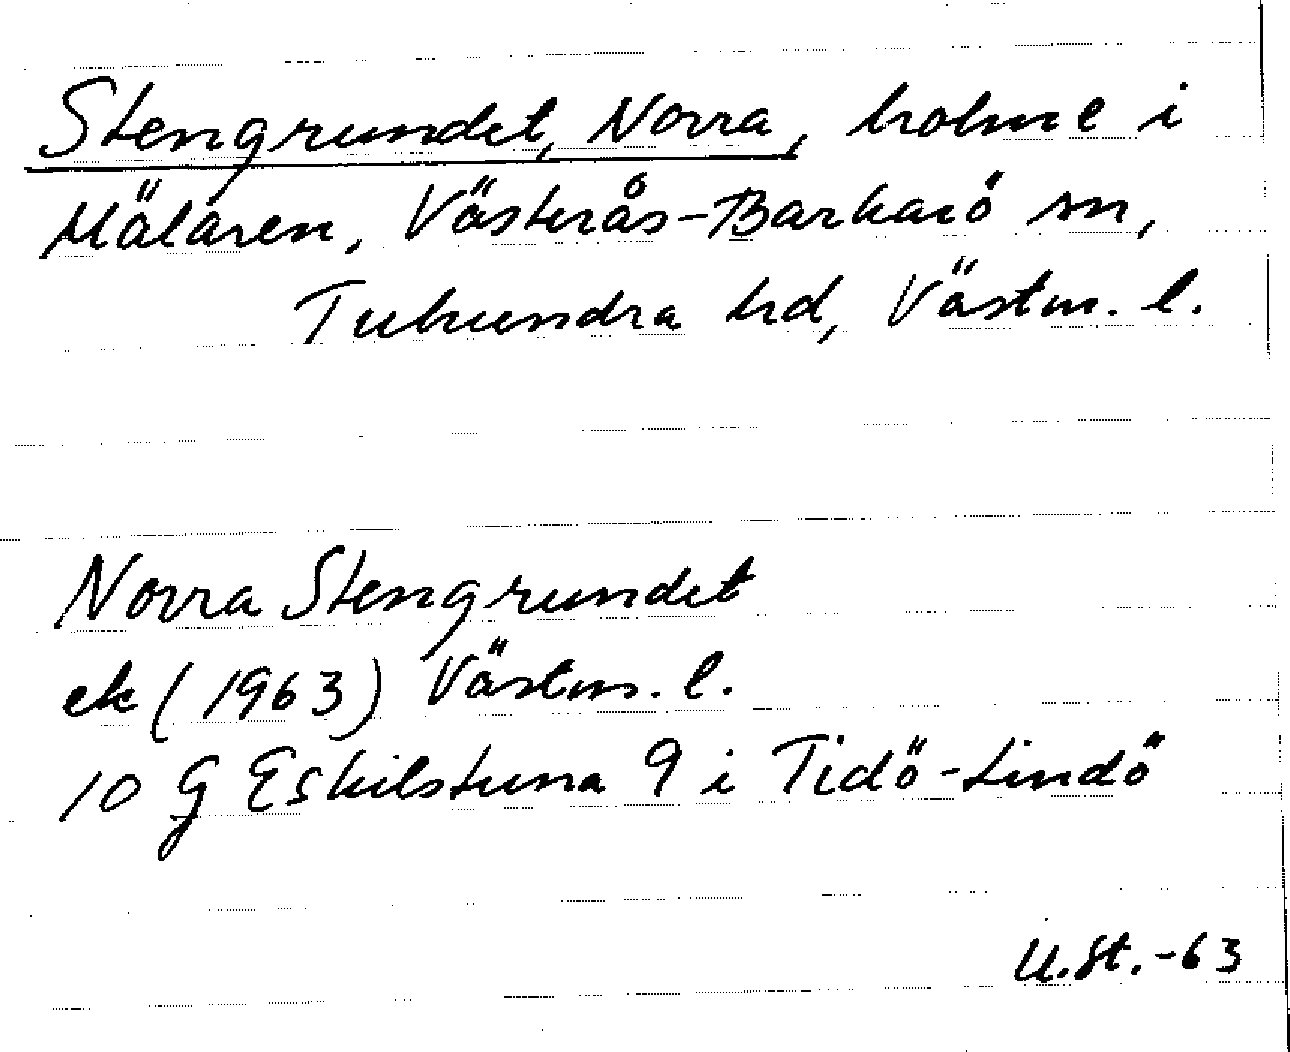 Stengrundet, Norra, holme i
Mälaren, Västerås-Barkarö sn,
Tuhundra hd, Västm. l.
Norra Stengrundet
ek (1963) Västm. l.
10 G Eskilstuna 9 i Tidö-Lindö
U.St.-63